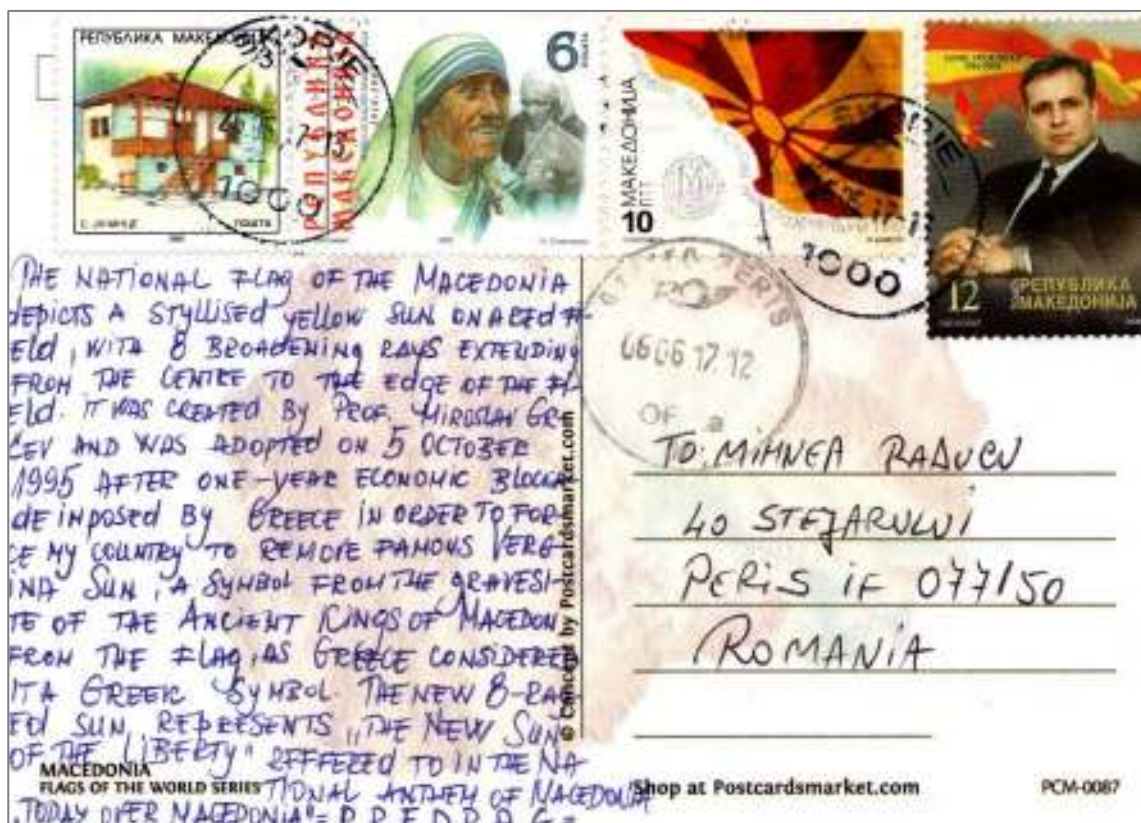 РЕПУБЛИКА МАКЕДОНИЈА
ПОШТА
РЕПУБЛИКА
МАКЕДОНИЈА
6
МАКЕДОНИЈА
ПТТ
10
12
РЕПУБЛИКА
МАКЕДОНИЈА
1000
1000
06 06 17. 12
THE NATIONAL FLAG OF THE MACEDONIA
DEPICTS A STYLLISED YELLOW SUN ON A RED FI-
ELD, WITH 8 BROADENING RAYS EXTENDING
FROM THE CENTRE TO THE EDGE OF THE FI-
ELD. IT WAS CREATED BY PROF. MIROSLAV GR-
CEV AND WAS ADOPTED ON 5 OCTOBER
1995 AFTER ONE-YEAR ECONOMIC BLOCKA-
DE INPOSED BY GREECE IN ORDER TO FOR-
CE MY COUNTRY TO REMOVE FAMOUS VERG-
INA SUN, A SYMBOL FROM THE GRAVESI-
TE OF THE ANCIENT KINGS OF MACEDON
FROM THE FLAG, AS GREECE CONSIDERED
IT A GREEK SYMBOL. THE NEW 8-RAY-
ED SUN, REPRESENTS „THE NEW SUN
OF THE LIBERTY" REFFERED TO IN THE NA-
TIONAL ANTHEM OF MACEDONIA
„TODAY OVER MACEDONIA" = PREDRAG =
TO: MIHNEA RADUCU
40 STEJARULUI
PERIS IF 077150
ROMANIA
© Concept by Postcardsmarket.com
MACEDONIA
FLAGS OF THE WORLD SERIES
Shop at Postcardsmarket.com
PCM-0087